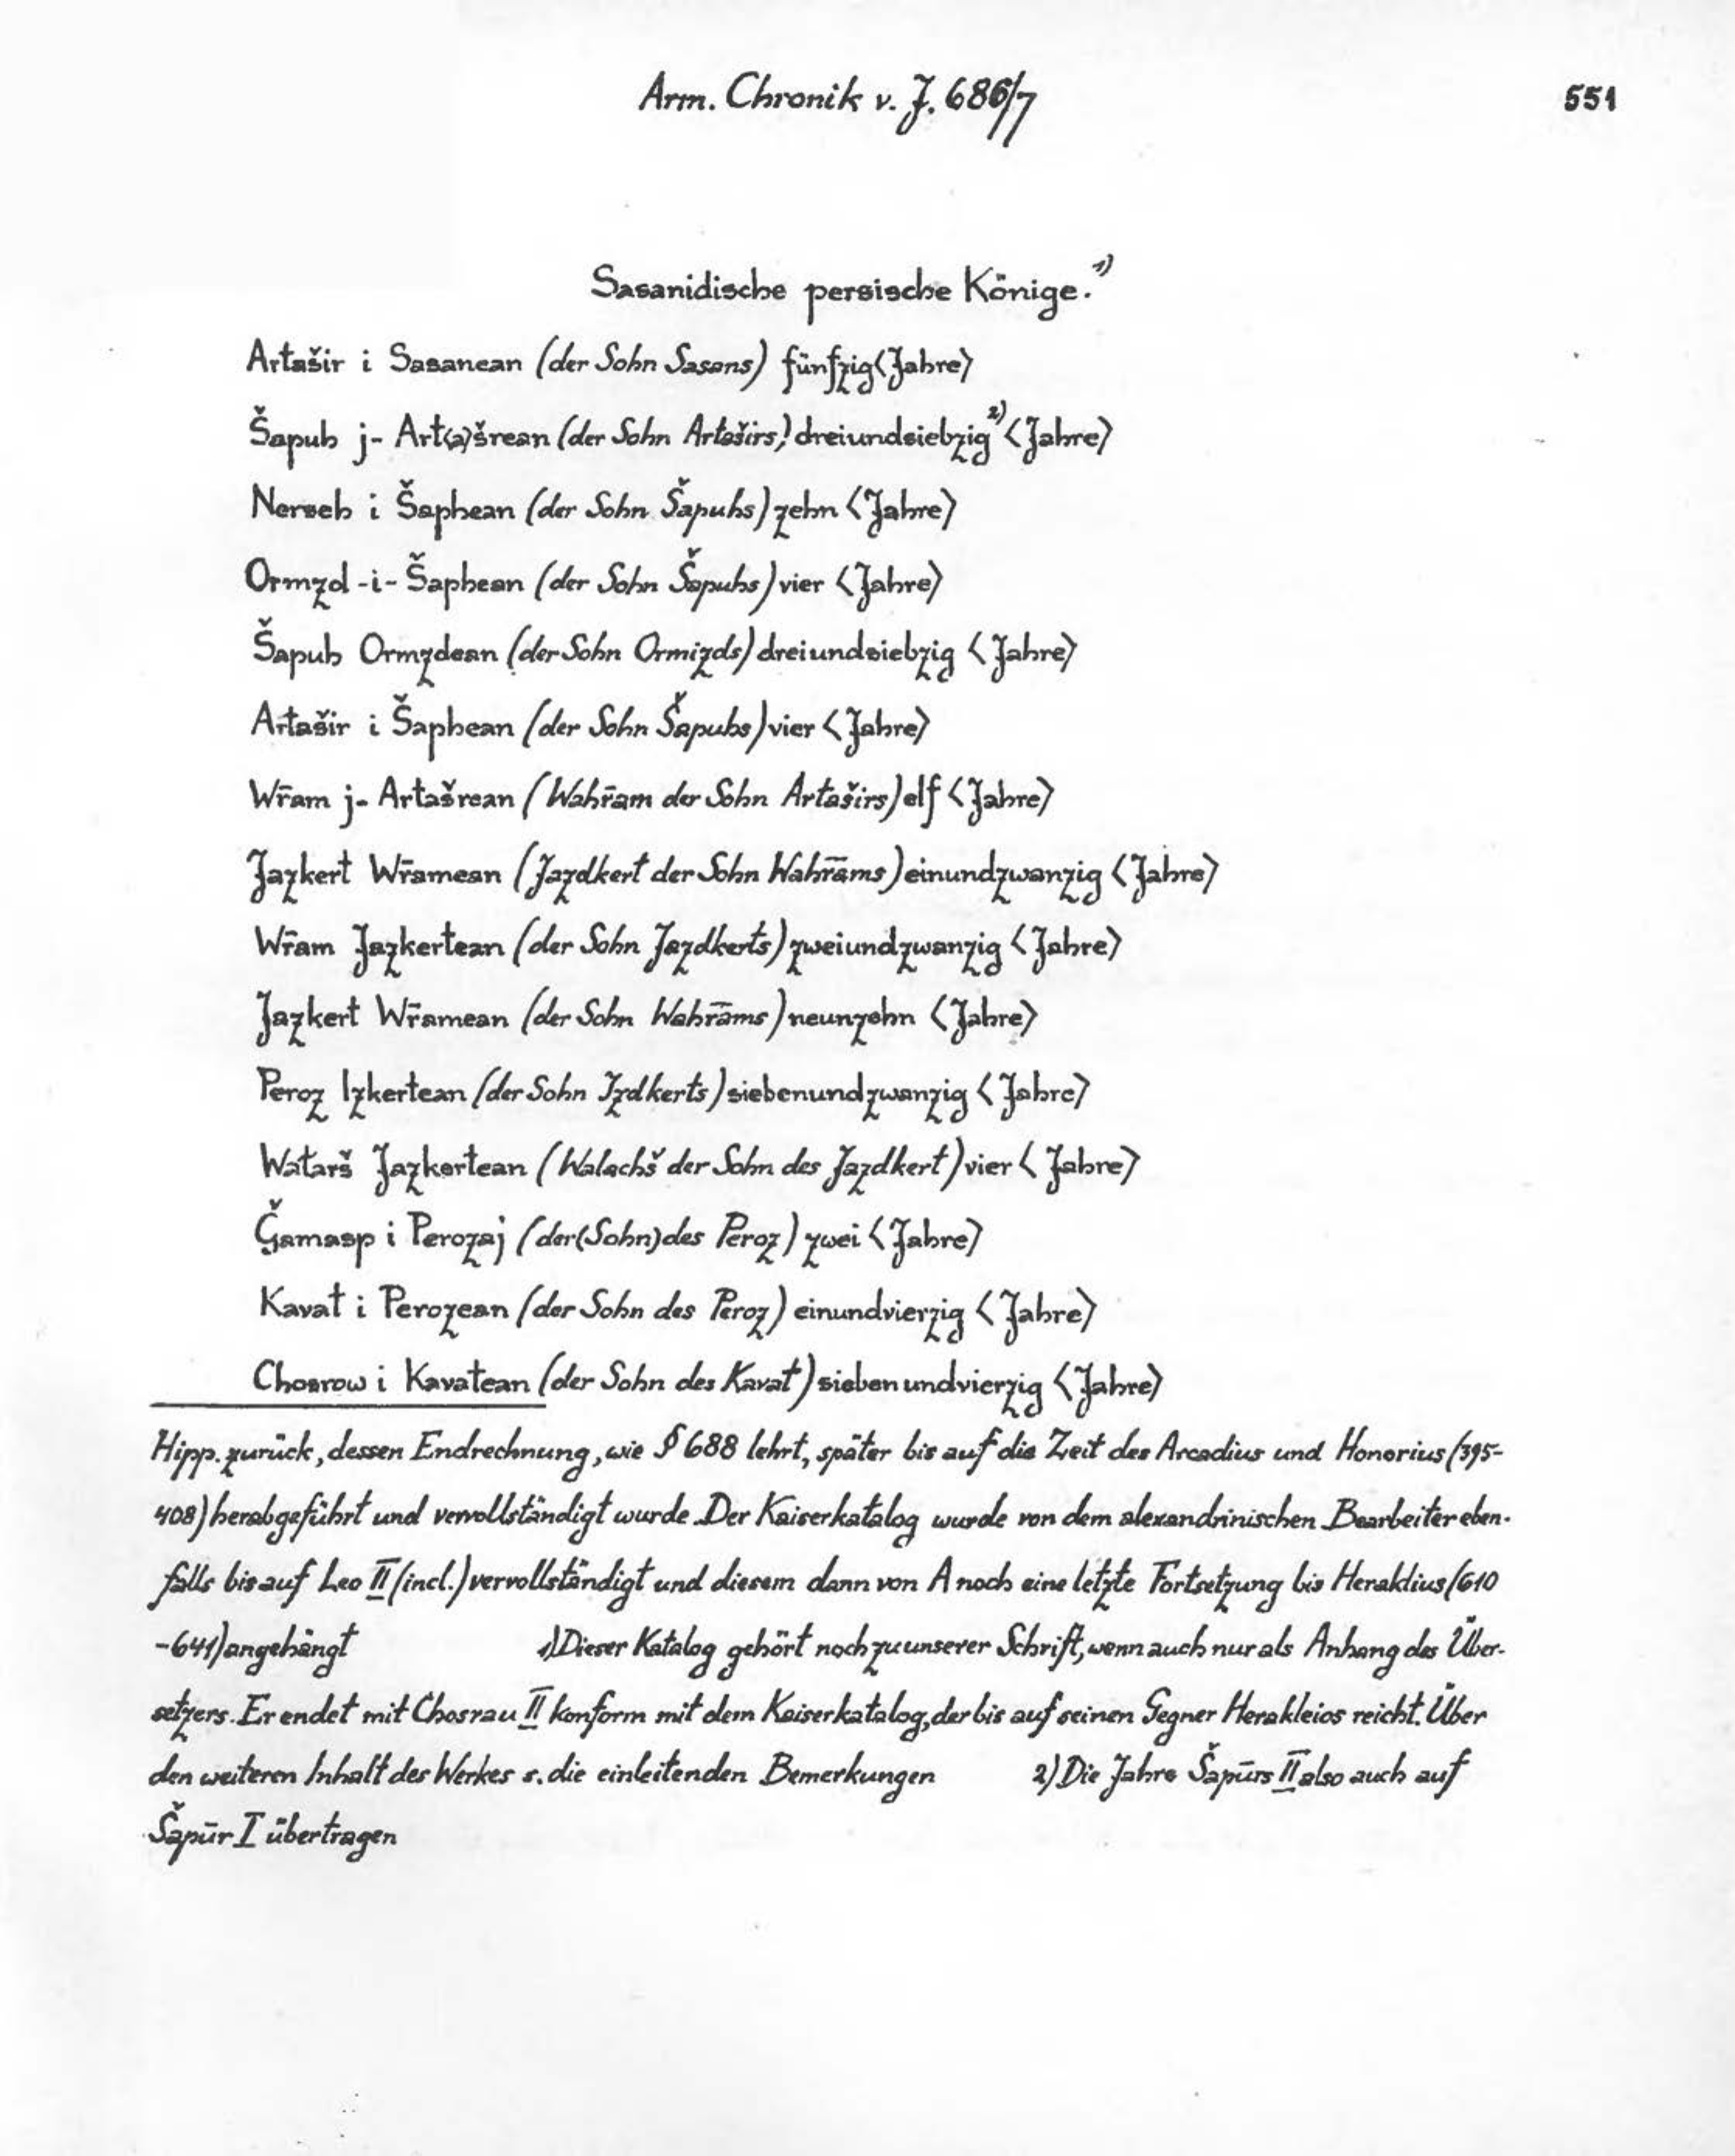 Arm. Chronik v. J. 686/7
551
Sasanidische persische Könige.¹⁾
Artašir i Sasanean (der Sohn Sasans) fünfzig ⟨Jahre⟩
Šapuh j- Art⟨a⟩šrean (der Sohn Artaširs) dreiundsiebzig²⁾ ⟨Jahre⟩
Nerseh i Šaphean (der Sohn Šapuhs) zehn ⟨Jahre⟩
Ormzd -i- Šaphean (der Sohn Šapuhs) vier ⟨Jahre⟩
Šapuh Ormzdean (der Sohn Ormizds) dreiundsiebzig ⟨Jahre⟩
Artašir i Šaphean (der Sohn Šapuhs) vier ⟨Jahre⟩
Wr̄am j- Artašrean (Wahr̄am der Sohn Artaširs) elf ⟨Jahre⟩
Jazkert Wr̄amean (Jazdkert der Sohn Wahrāms) einundzwanzig ⟨Jahre⟩
Wr̄am Jazkertean (der Sohn Jazdkerts) zweiundzwanzig ⟨Jahre⟩
Jazkert Wr̄amean (der Sohn Wahrāms) neunzehn ⟨Jahre⟩
Peroz Izkertean (der Sohn Izdkerts) siebenundzwanzig ⟨Jahre⟩
Watarš Jazkertean (Walachš der Sohn des Jazdkert) vier ⟨Jahre⟩
Ǧamasp i Perozaj (der (Sohn) des Peroz) zwei ⟨Jahre⟩
Kavat i Perozean (der Sohn des Peroz) einundvierzig ⟨Jahre⟩
Chosrow i Kavatean (der Sohn des Kavat) siebenundvierzig ⟨Jahre⟩
Hipp. zurück, dessen Endrechnung, wie § 688 lehrt, später bis auf die Zeit des Arcadius und Honorius (395-
408) herabgeführt und vervollständigt wurde. Der Kaiserkatalog wurde von dem alexandrinischen Bearbeiter eben-
falls bis auf Leo II (incl.) vervollständigt und diesem dann von A noch eine letzte Fortsetzung bis Heraklius (610
-641) angehängt 1) Dieser Katalog gehört noch zu unserer Schrift, wenn auch nur als Anhang des Über-
setzers. Er endet mit Chosrau II konform mit dem Kaiserkatalog, der bis auf seinen Gegner Herakleios reicht. Über
den weiteren Inhalt des Werkes s. die einleitenden Bemerkungen 2) Die Jahre Šapūrs II also auch auf
Šapūr I übertragen